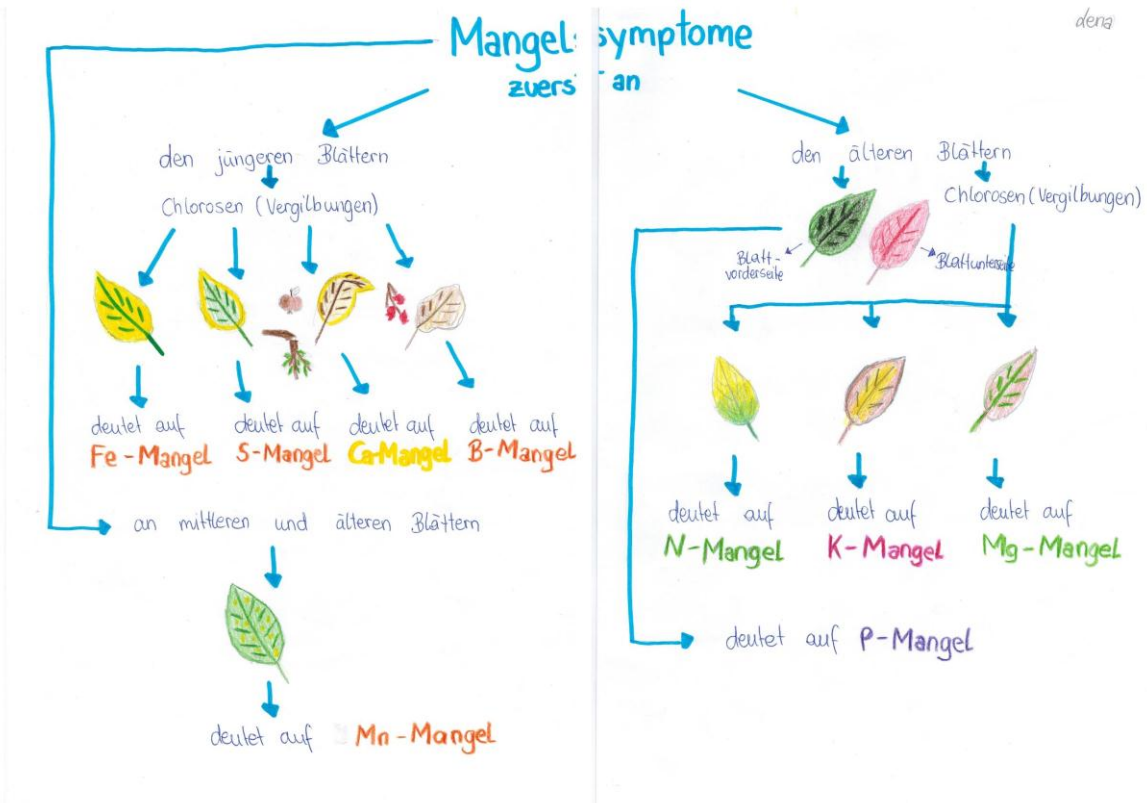 dena
Mangelsymptome
zuerst an
den jüngeren Blättern
Chlorosen (Vergilbungen)
deutet auf
Fe-Mangel
deutet auf
S-Mangel
deutet auf
Ca-Mangel
deutet auf
B-Mangel
an mittleren und älteren Blättern
deutet auf Mn-Mangel
den älteren Blättern
Chlorosen (Vergilbungen)
Blatt-
vorderseite
Blattunterseite
deutet auf
N-Mangel
deutet auf
K-Mangel
deutet auf
Mg-Mangel
deutet auf P-Mangel